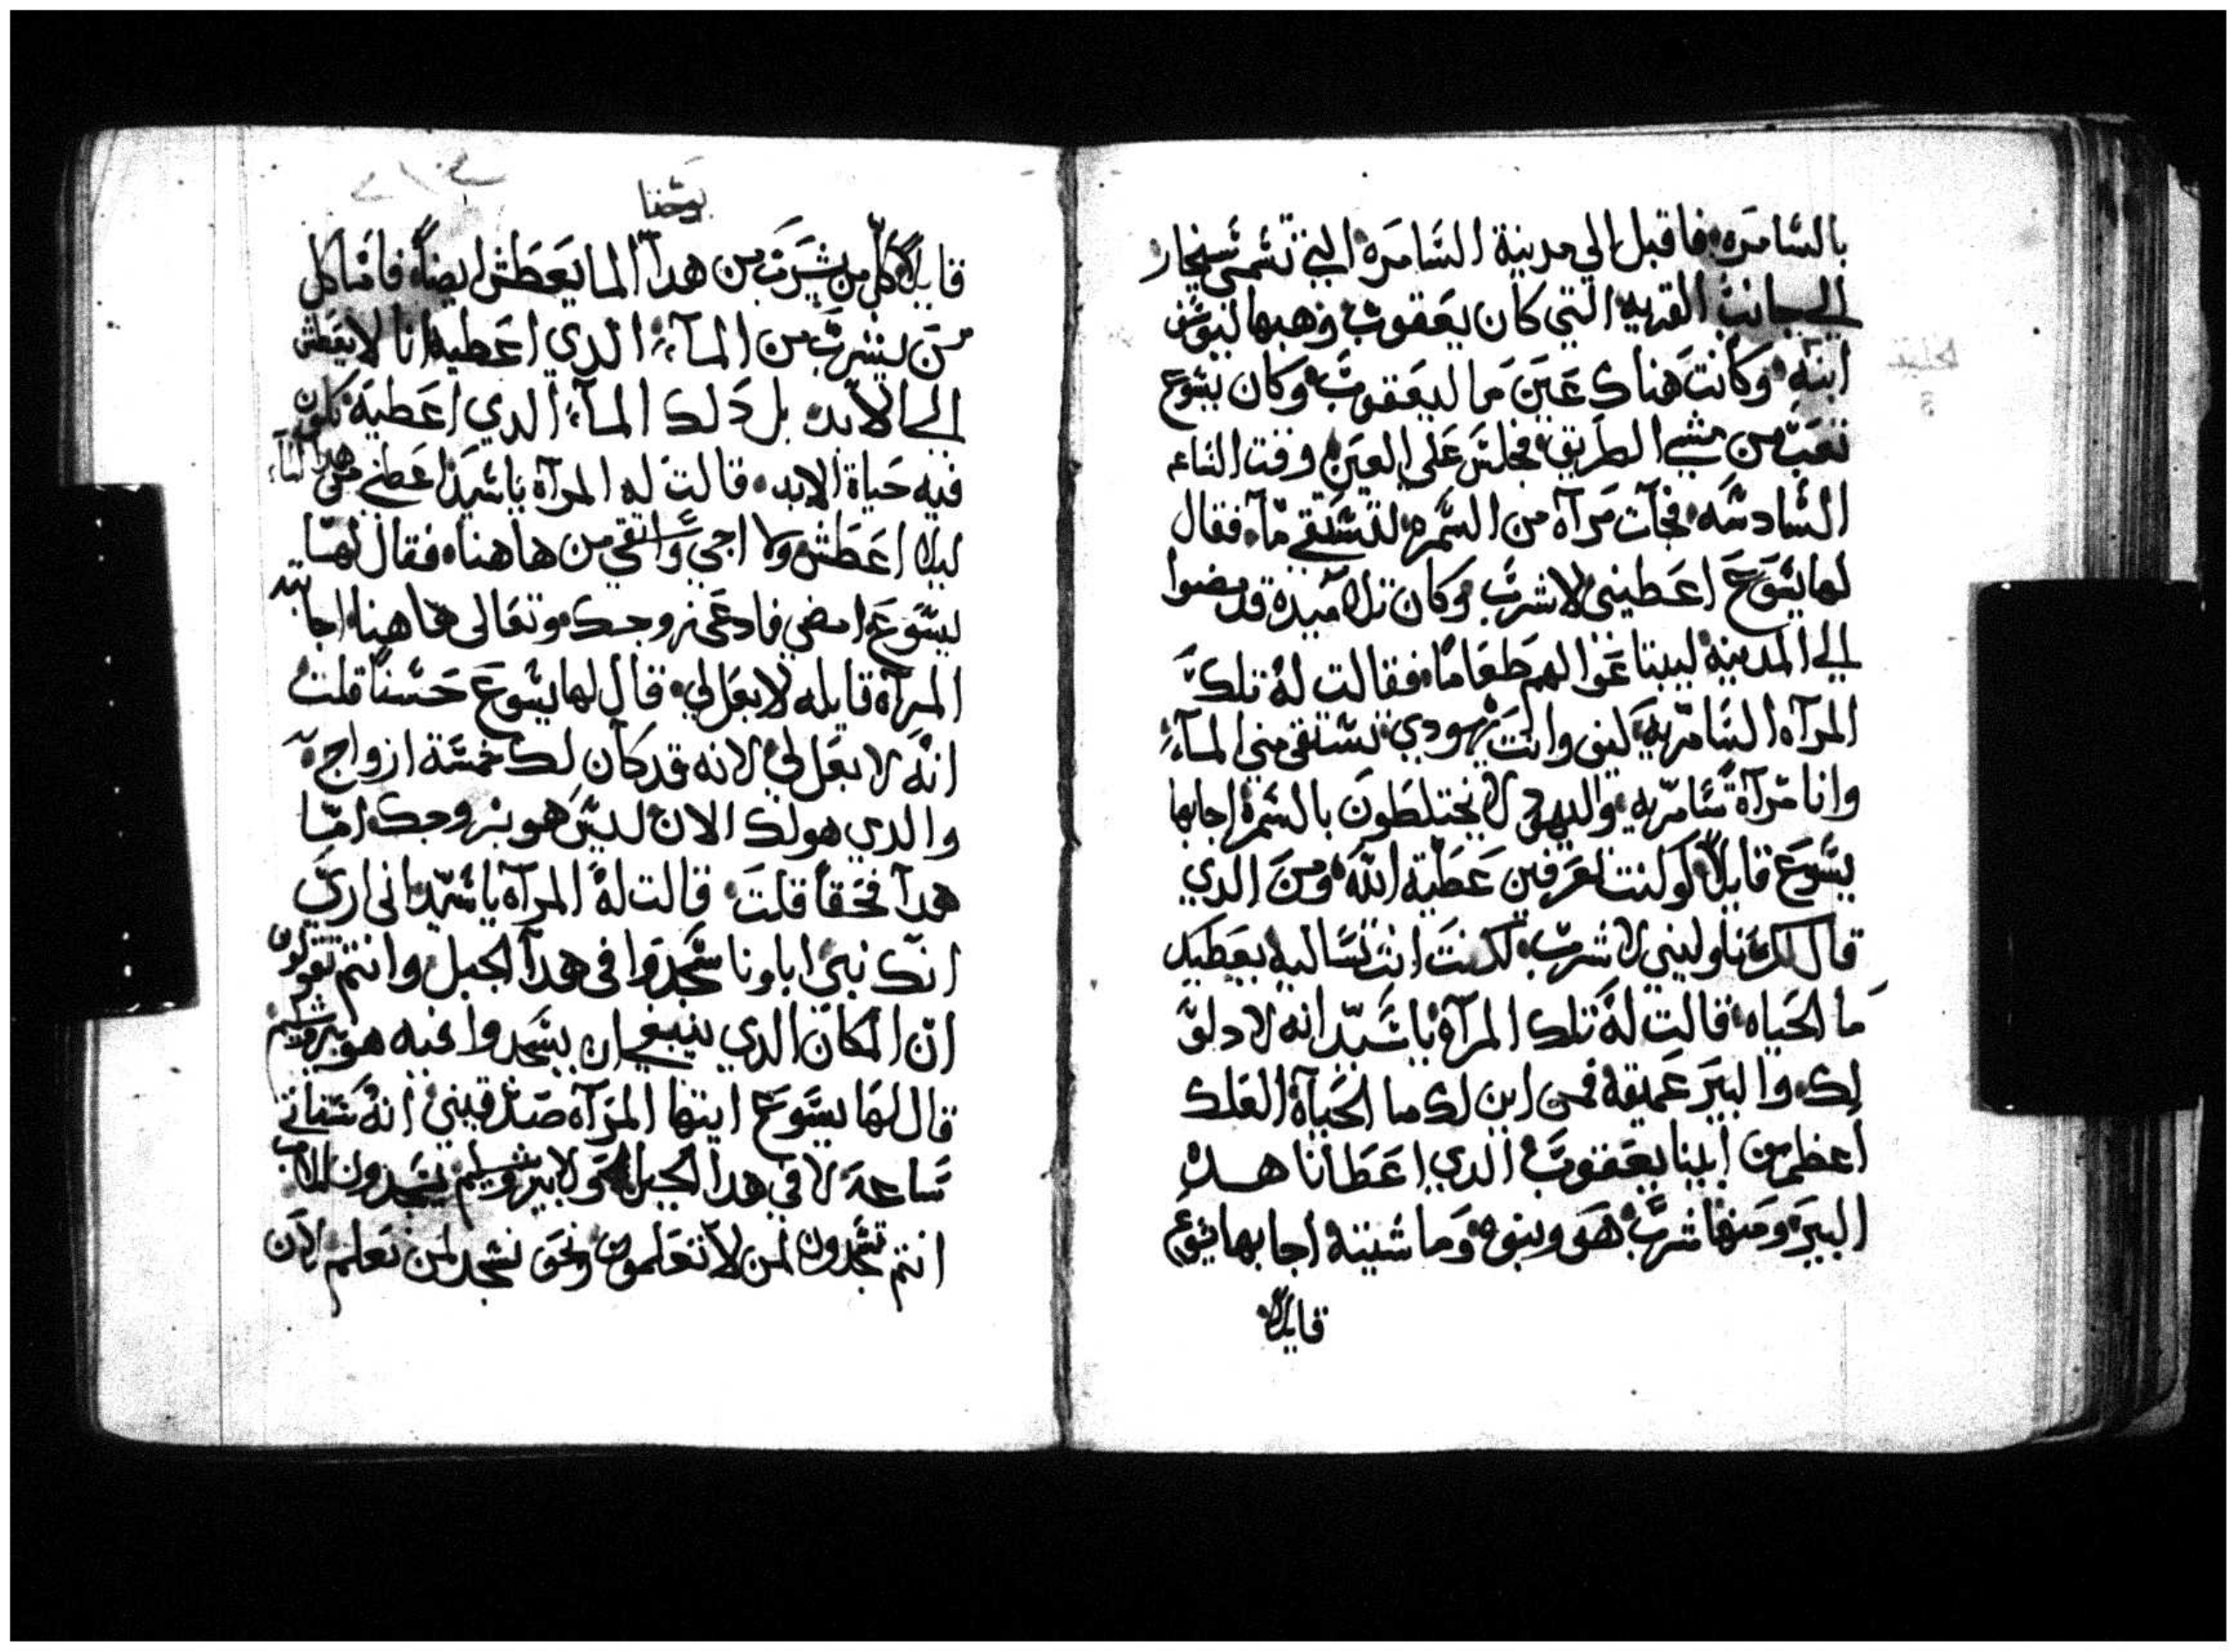 بالسّامَره فاقبل الي مدينة السّامَره التي تسَمى سيخار
الي جانب القريه التي كان يعَقوب وَهبها ليوسف
ابنه وَكانت هناك عَين ما ليعَقوب وَكان يسُوع
تعَب من مشي الطريق فجلسَ عَلي العَين وقت السَاعه
السّادسَه فجآت مَرآه من السَّمره لتسَتقي مآ فقال
لها يسَوعَ اعَطيني لاشربَ وَكان تلاميده قد مضوا
الي المدينه ليبتاعَوا لهم طعَامًا فقالت لهُ تلكَ
المرآه السَّامَريّه كيف وانتَ يهودي تسَتقي مني المآء
وانا مَرآة سَامَريه واليهود لا يختلطون بالسَمره اجابها
يسَوعَ قايلاً لو كنت تعَرفين عَطية اللّه ومنَ الدي
قال لك ناوليني لاشرب لكنتَ انتِ تسَاليه يعَطيك
ما الحَياه قالت لهُ تلك المرآة يا سَيّد انه لا دلوَ
لك والبيرَ عَميقه فمن اين لك ما الحَيآة العَلك
اعظم من ابينا يعَقوبَ الدي اعَطانا هده
البيرَ ومَنها شربَ هَو وبنوه وَماشيته اجابها يسَوع
قايلاً
يوحَنا
قايلاً كلّ من يشرَب من هدآ الما يَعَطش ايضاً فامّا كل
منَ يشربَ من المآء الدي اعَطيه انا لا يعَطش
الي الابد بل دَلك المآء الدي اعَطيَه تكون
فيه حَياة الابد قالت له المرآة يا سَيدَ اعَطني من هدا المآء
ليلا اعَطش ولا اجي واسَتقي من هاهنا فقال لهَا
يسَوَعَ امضي فادعَى زوجك وتعَالى هاهنا اجابته
المرآه قايله لا بعَل لي قال لها يسَوعَ حَسَناً قلت
انهُ لا بعَل لي لانه قد كان لك خمسَة ازواج
والدي هو لك الان ليسَ هو بزوجك امّا
هدآ فحَقاً قلتَ قالت لهُ المرآه يا سَيّد اني اريَ
انكَ نبيَ اباونا سَجَدوَا في هدآ الجبل وانتم تقولون
انّ المكان الدي ينبغي ان يسَجدوا فيه هو بيروشليم
قال لهَا يسَوعَ ايتها المرَآه صَدّقيني انهُ سَتاتي
سَاعة لا في هدا الجبل ولا بيروشليم يسَجدون للاب
انتم تسَجدون لمن لا تعَلمون ونحَن نسَجد لمن نعَلم لان